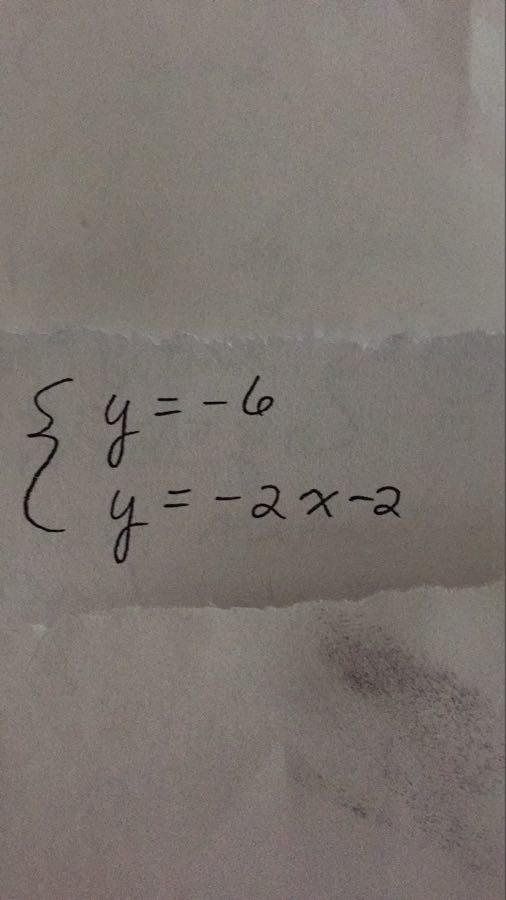 { y = -6
y = -2x-2